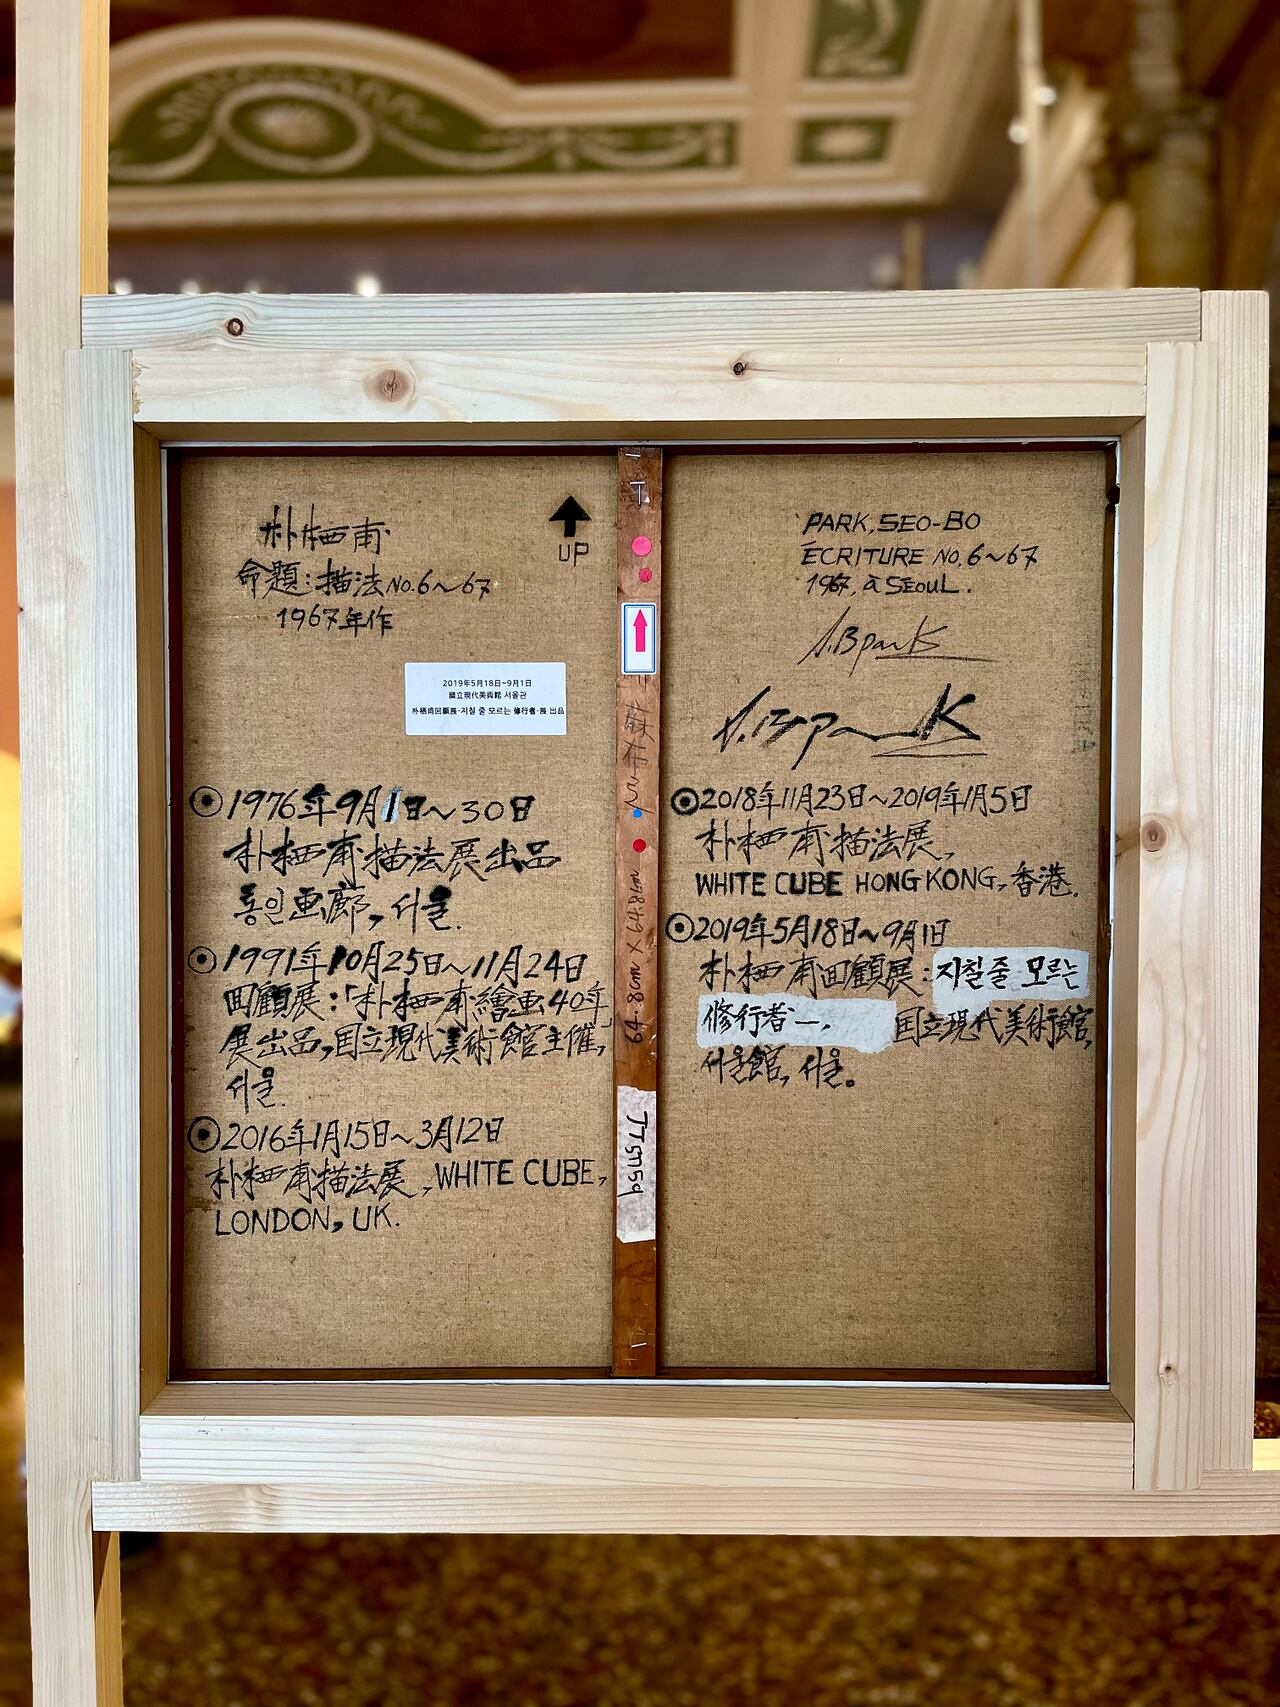 朴栖甫
命題:描法No.6~67
1967年作
UP
2019年5月18日~9月1日
國立現代美術館 서울관
朴栖甫回顧展-지칠 줄 모르는 修行者-展 出品
⦿1976年9月1日~30日
朴栖甫描法展出品
통인画廊, 서울.
⦿1991年10月25日~11月24日
回顧展:「朴栖甫繪画40年
展出品,国立現代美術館主催,
서울.
⦿2016年1月15日~3月12日
朴栖甫描法展, WHITE CUBE,
LONDON, UK.
麻布
64.8cm X 64.8cm
PARK, SEO-BO
ÉCRITURE No. 6~67
1967, à SEOUL.
S.B park
S.B park
⦿2018年11月23日~2019年1月5日
朴栖甫描法展,
WHITE CUBE HONG KONG, 香港.
⦿2019年5月18日~9月1日
朴栖甫回顧展:지칠줄 모르는
修行者—, 国立現代美術館,
서울館, 서울。